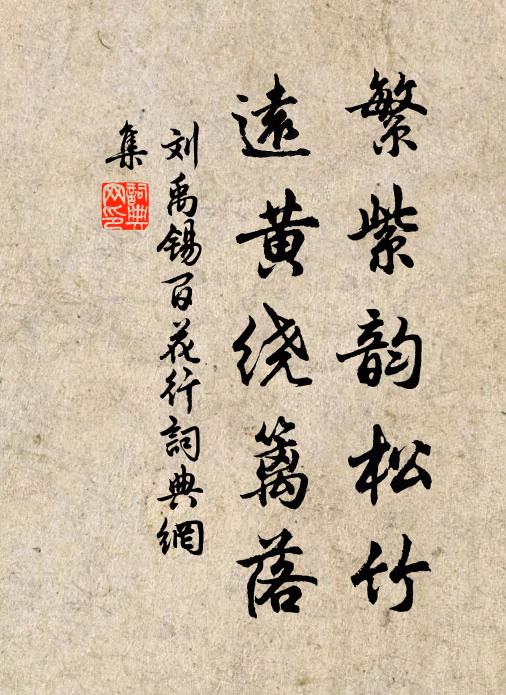 繁紫韵松竹
遠黄绕篱落
刘禹锡百花行詞典網
集
詞典网印